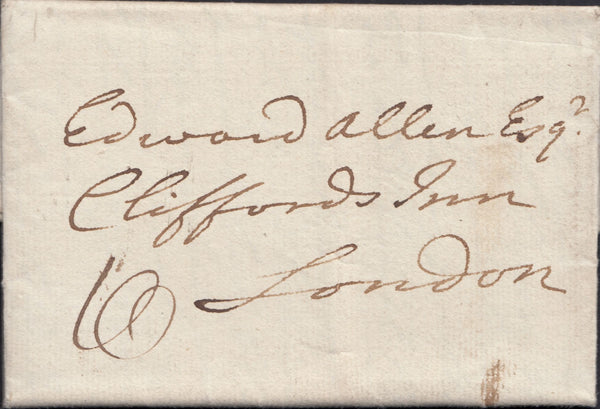 Edward Allen Esqr.
Cliffords Inn
6 London